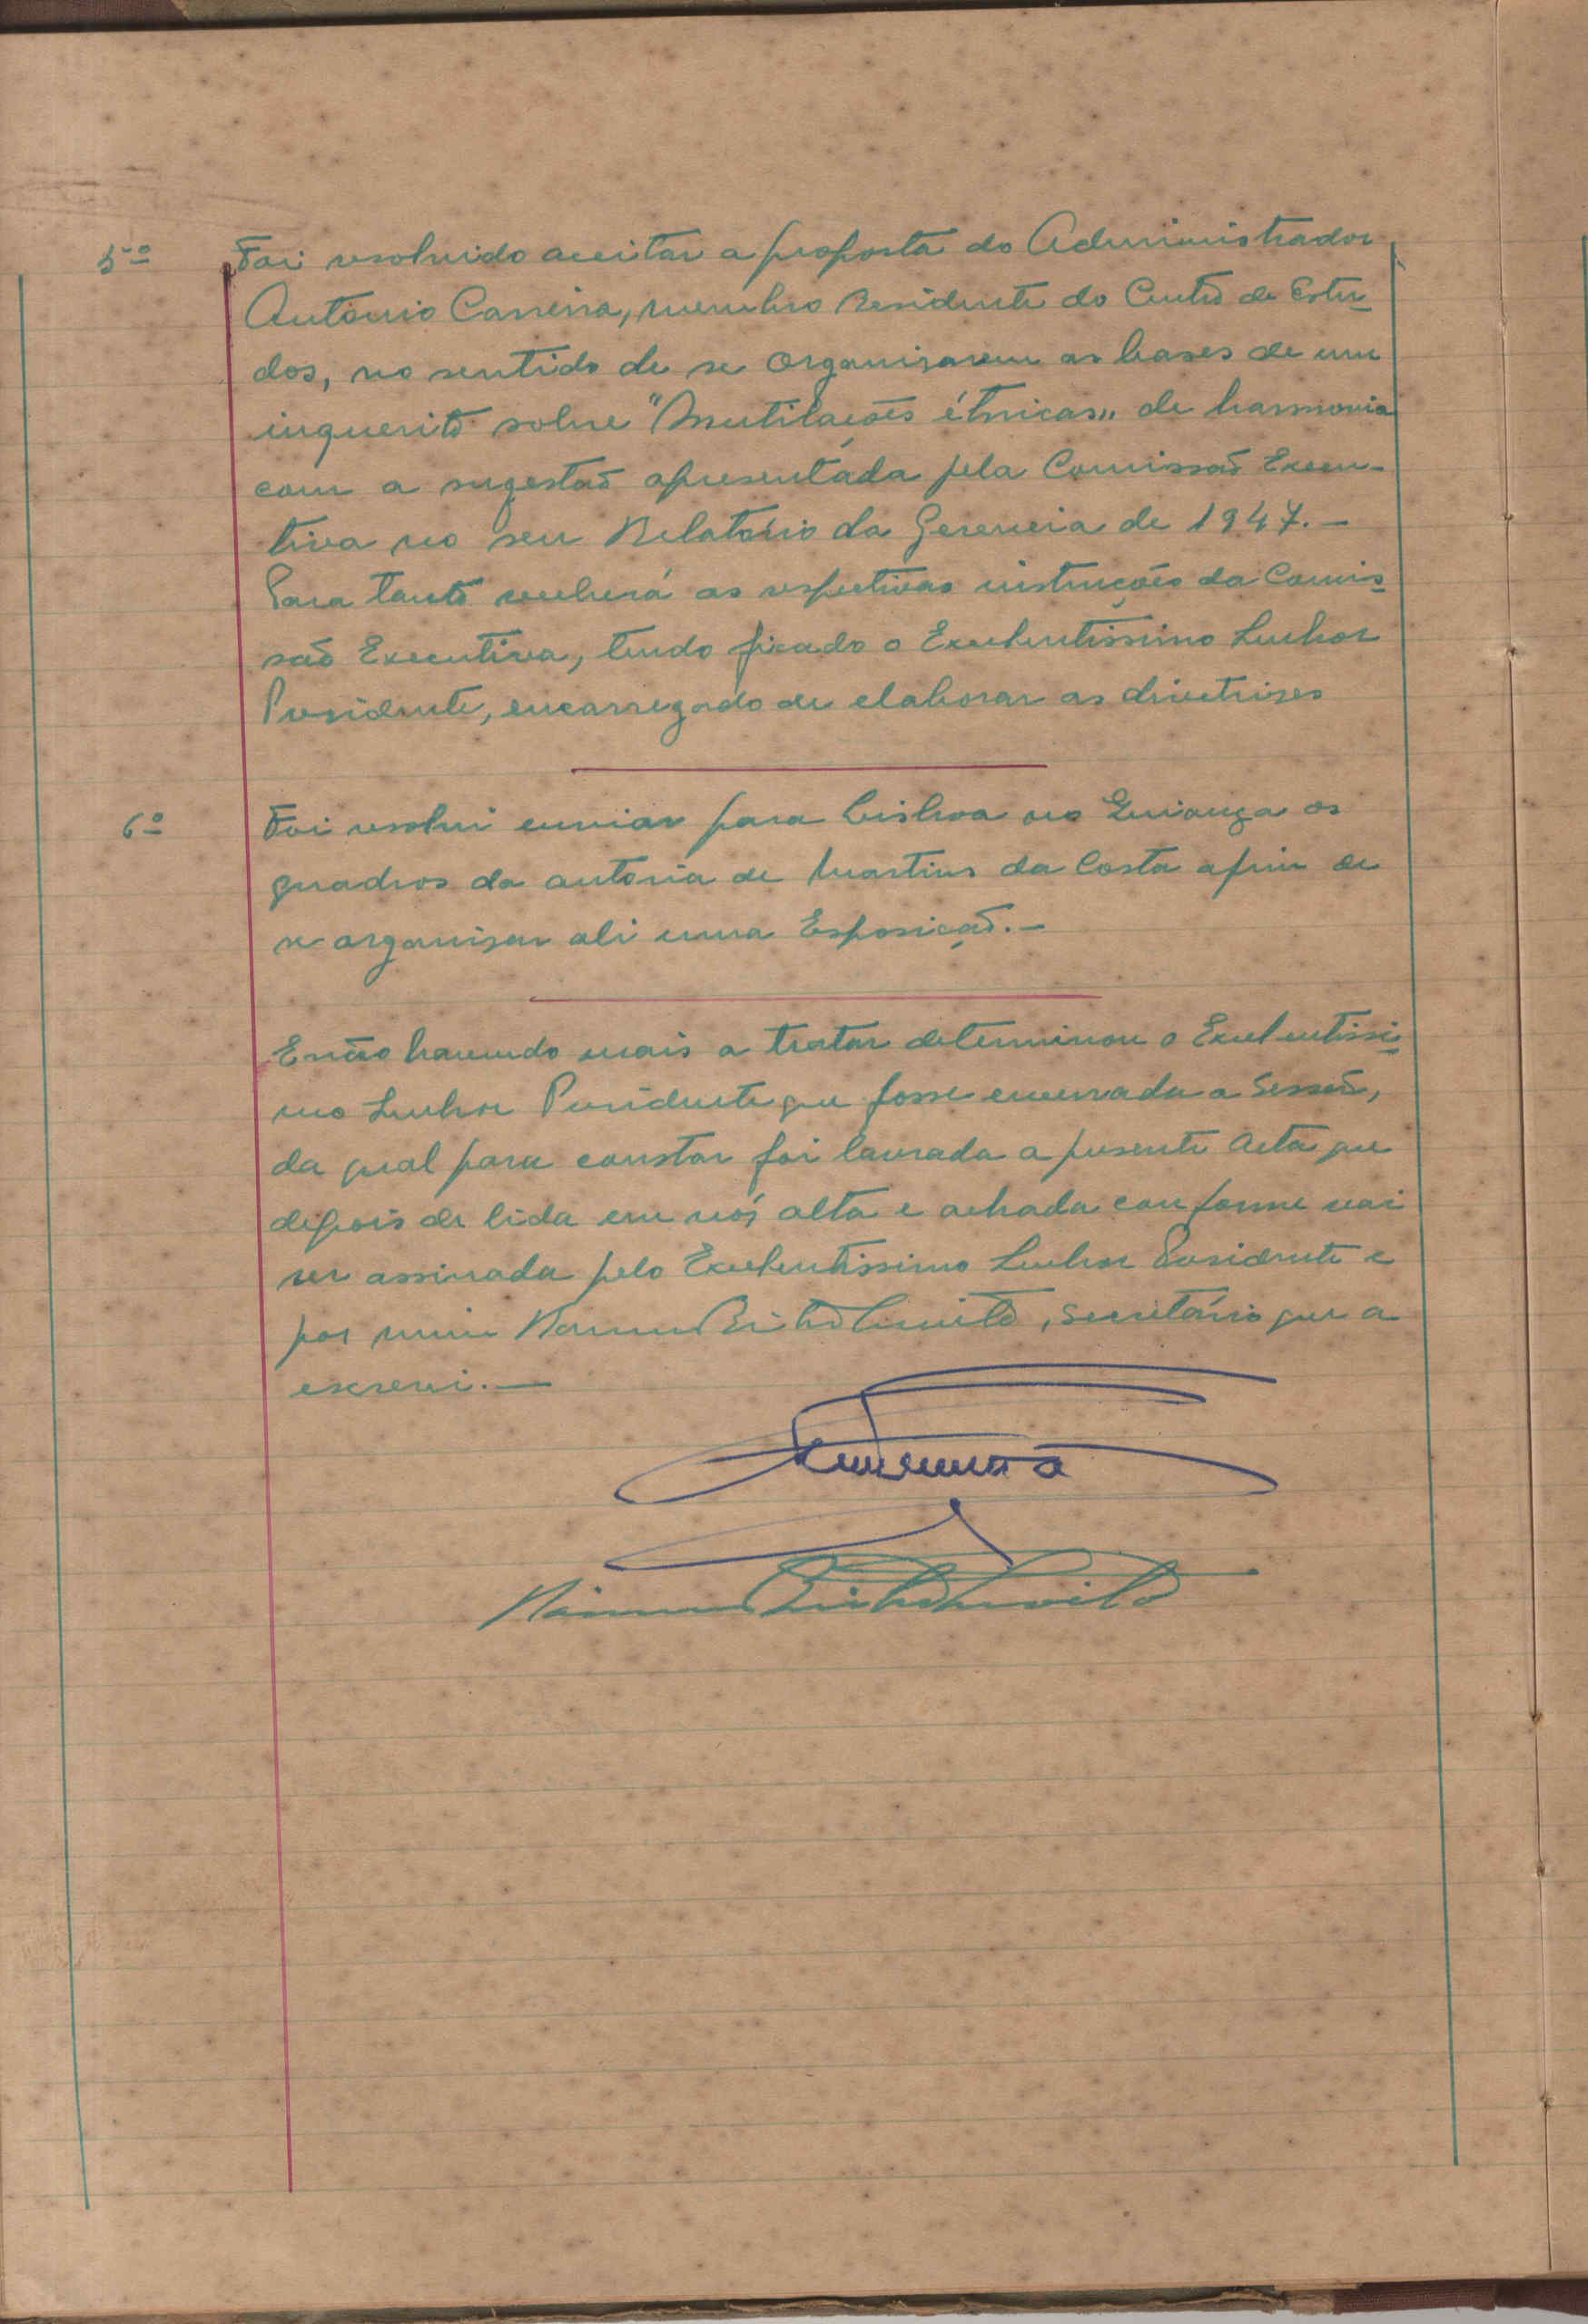 5º Foi resolvido aceitar a proposta do Administrador
António Carreira, membro Residente do Centro de Estu-
dos, no sentido de se organisarem as bases de um
inquerito sobre "Mutilações étnicas" de harmonia
com a sugestão apresentáda pela Comissão Execu-
tiva no seu Relatório da Gerencia de 1947.-
Para tanto receberá as respectivas instruções da Comis-
são Executiva, tendo ficado o Excelentissimo Senhor
Presidente, encarregado de elaborar as diretrises
6º Foi resolvi enviar para Lisboa os
quadros da autoria de Martins da Costa afim de
se organisar ali uma Esposição.-
E não havendo mais a tratar determinou o Excelentissi-
mo Senhor Presidente que fosse encerrada a Sessão,
da qual para constar foi lavrada a presente acta que
depois de lida em vós alta e achada conforme vai
ser assinada pelo Excelentissimo Senhor Presidente e
por mim, secretário que a
escrevi.-